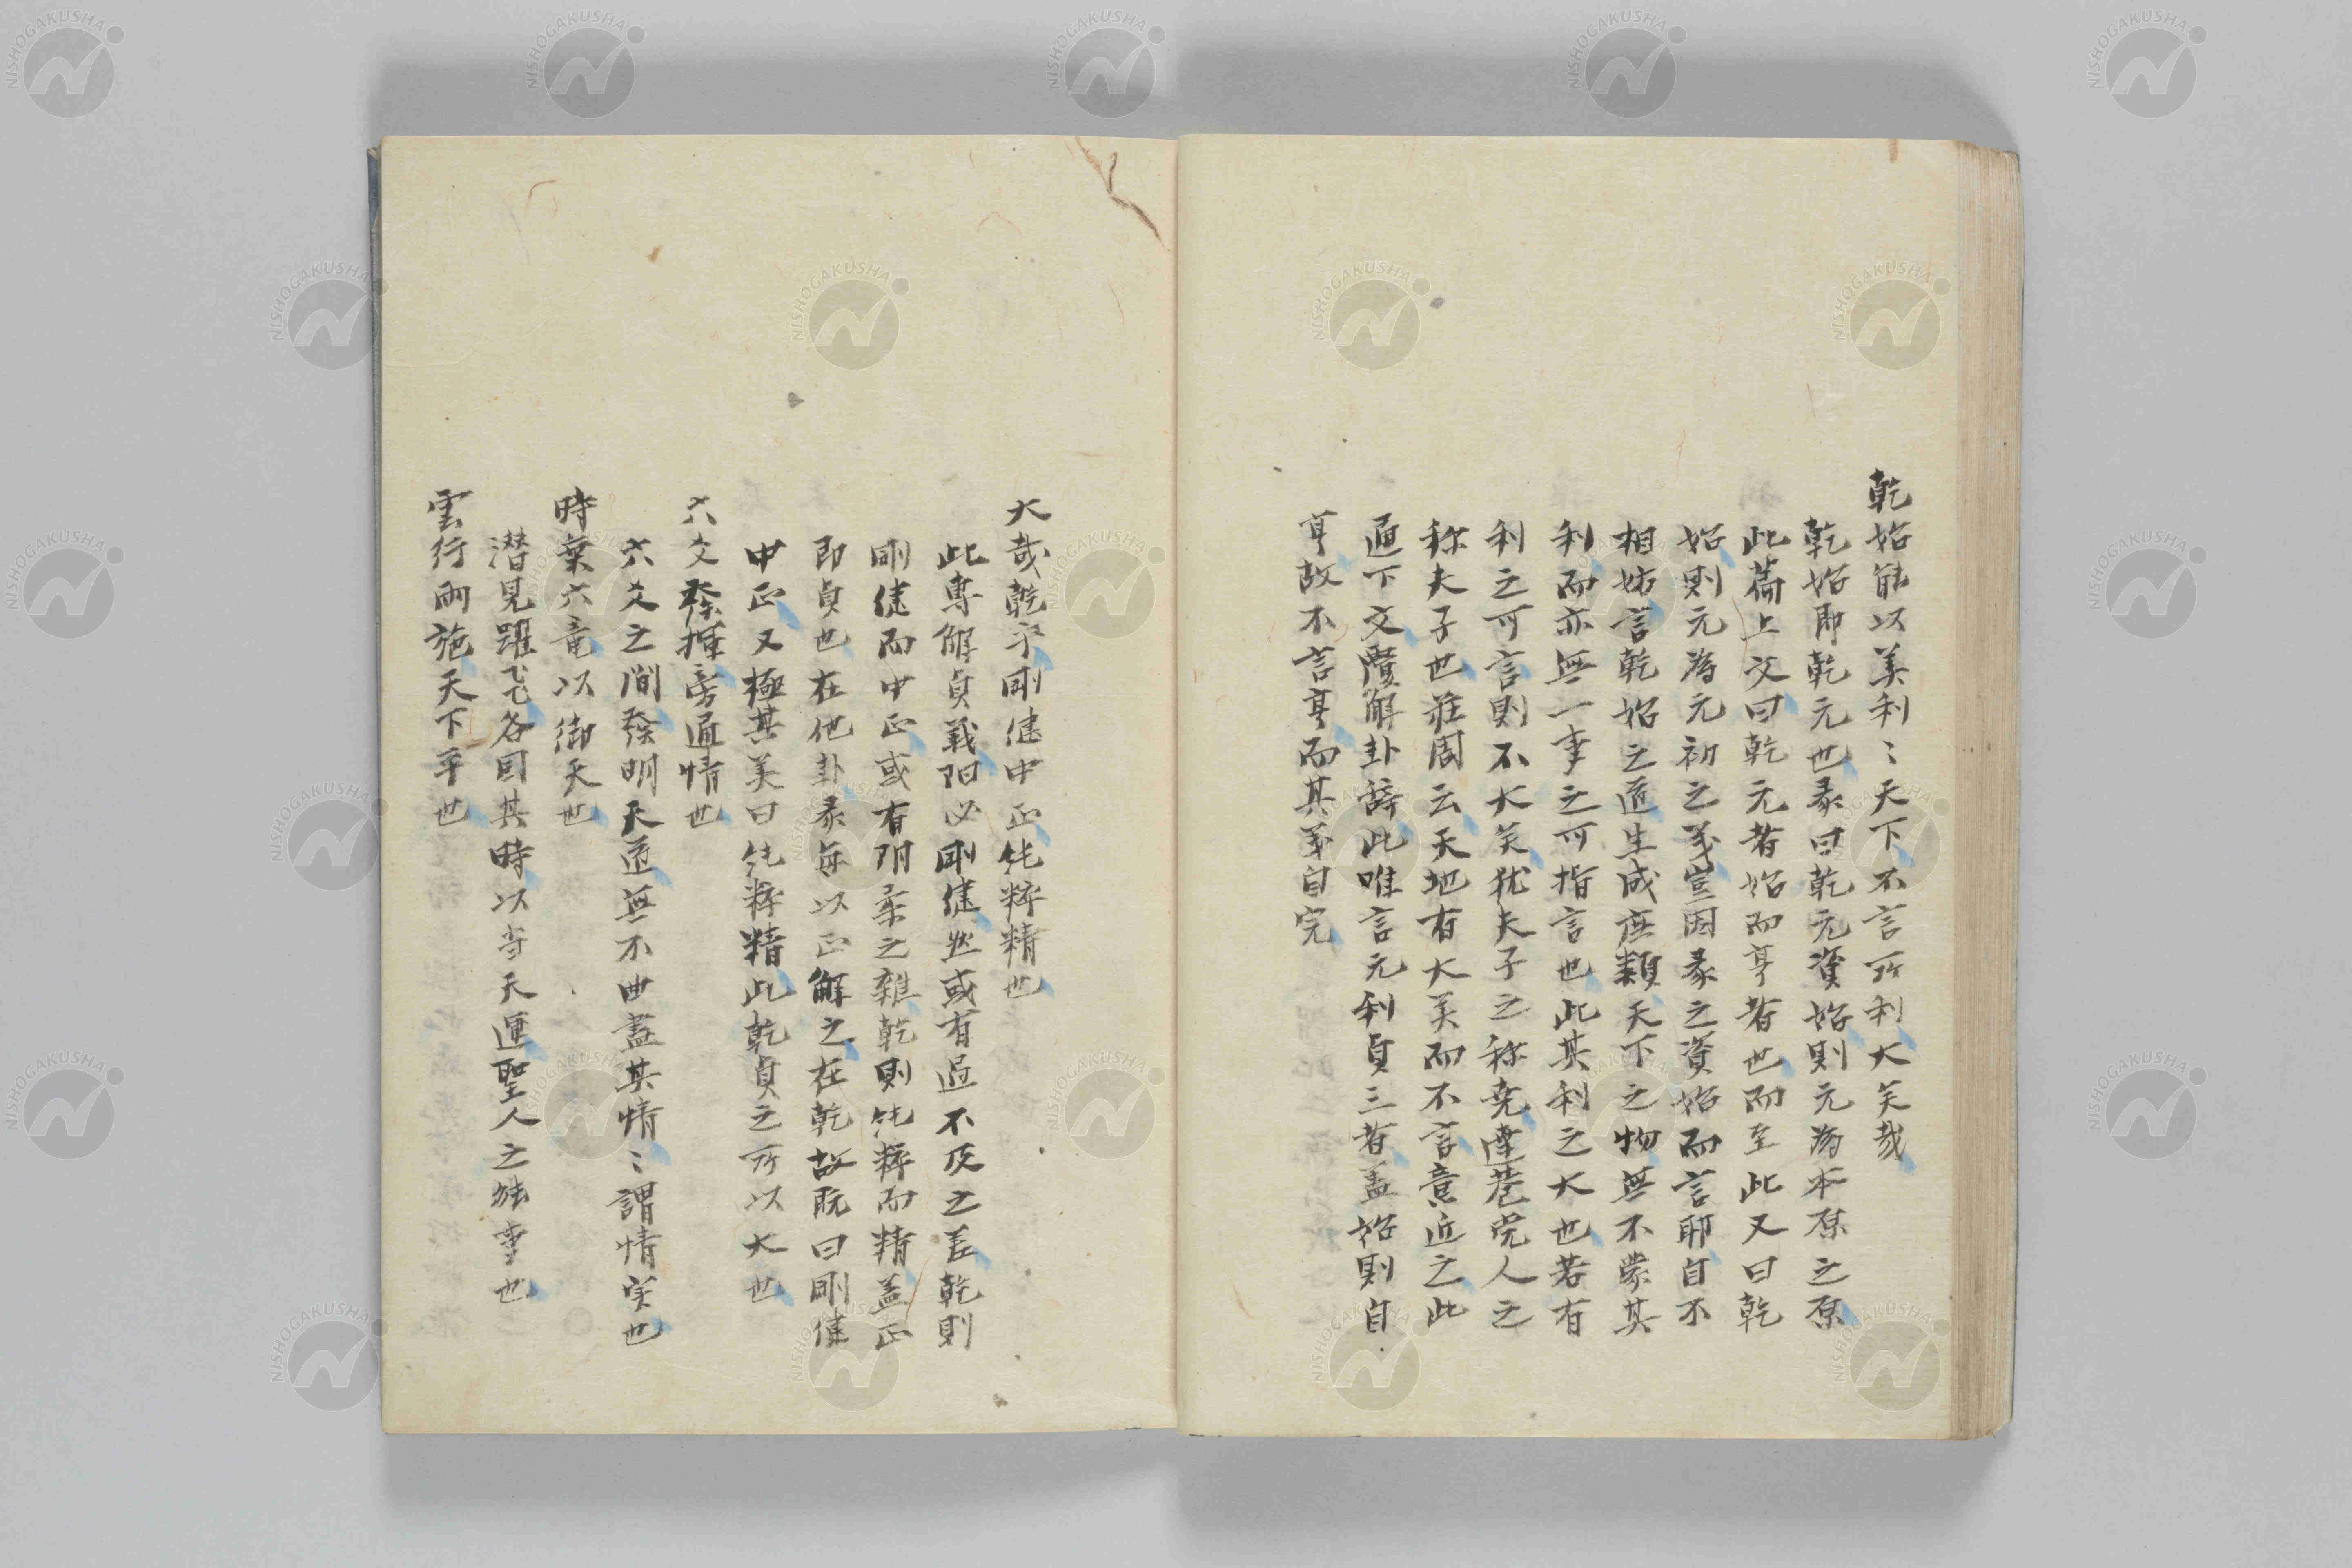 乾始能以美利〻天下不言所利大矣哉
乾始即乾元也彖曰乾元資始則元為本原之原
此篇上文曰乾元者始而亨者也而至此又曰乾
始則元為元初之義豈因彖之資始而言耶自不
相妨言乾始之道生成庶類天下之物無不蒙其
利而亦無一事之可指言也此其利之大也若有
利之可言則不大矣犹夫子之称尭達巷党人之
称夫子也荘周云天地有大美而不言意近之此
通下文覆解卦辞此唯言元利貞三者盖始則自
亨故不言亨而其義自完
大哉乾乎剛健中正純粹精也
此専解貞義陽必剛健然或有過不及之差乾則
剛健而中正或有陰柔之雜乾則純粹而精盖正
即貞也在他卦彖毎以正解之在乾故既曰剛健
中正又極其美曰純粹精此乾貞之所以大也
六爻發揮旁通情也
六爻之間發明天道無不曲盡其情〻謂情実也
時乗六竜以御天也
潜見躍飛各因其時以当天運聖人之能事也
雲行雨施天下平也
NISHOGAKUSHA